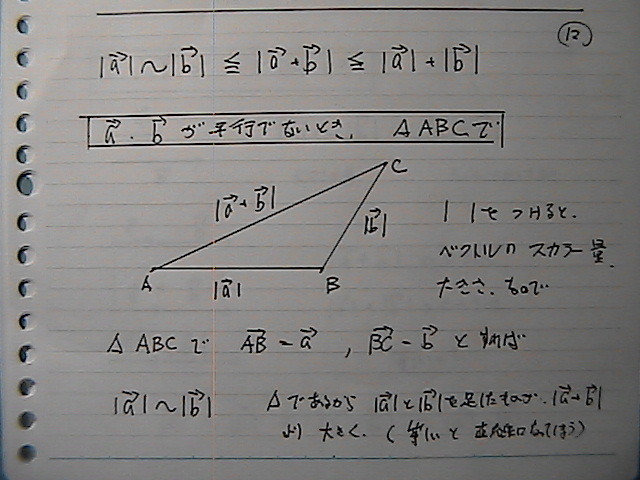 ⑫
|a⃗|〜|b⃗| ≦ |a⃗+b⃗| ≦ |a⃗|+|b⃗|
a⃗・b⃗ が平行でないとき、 △ABCで
C
|a⃗+b⃗|
|b⃗|
A
|a⃗|
B
| |をつけると、
ベクトルの スカラー量、
大きさ、なので
△ABCで AB⃗=a⃗ , BC⃗=b⃗ とすれば
|a⃗|〜|b⃗| △であるから |a⃗|と|b⃗|を足したものが、|a⃗+b⃗|
より 大きく、(等しいと 直線になってしまう)